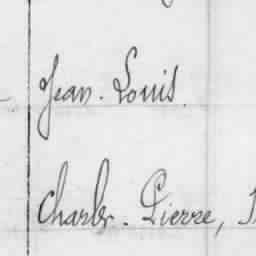 Jean. Louis.
Charles. Pierre,